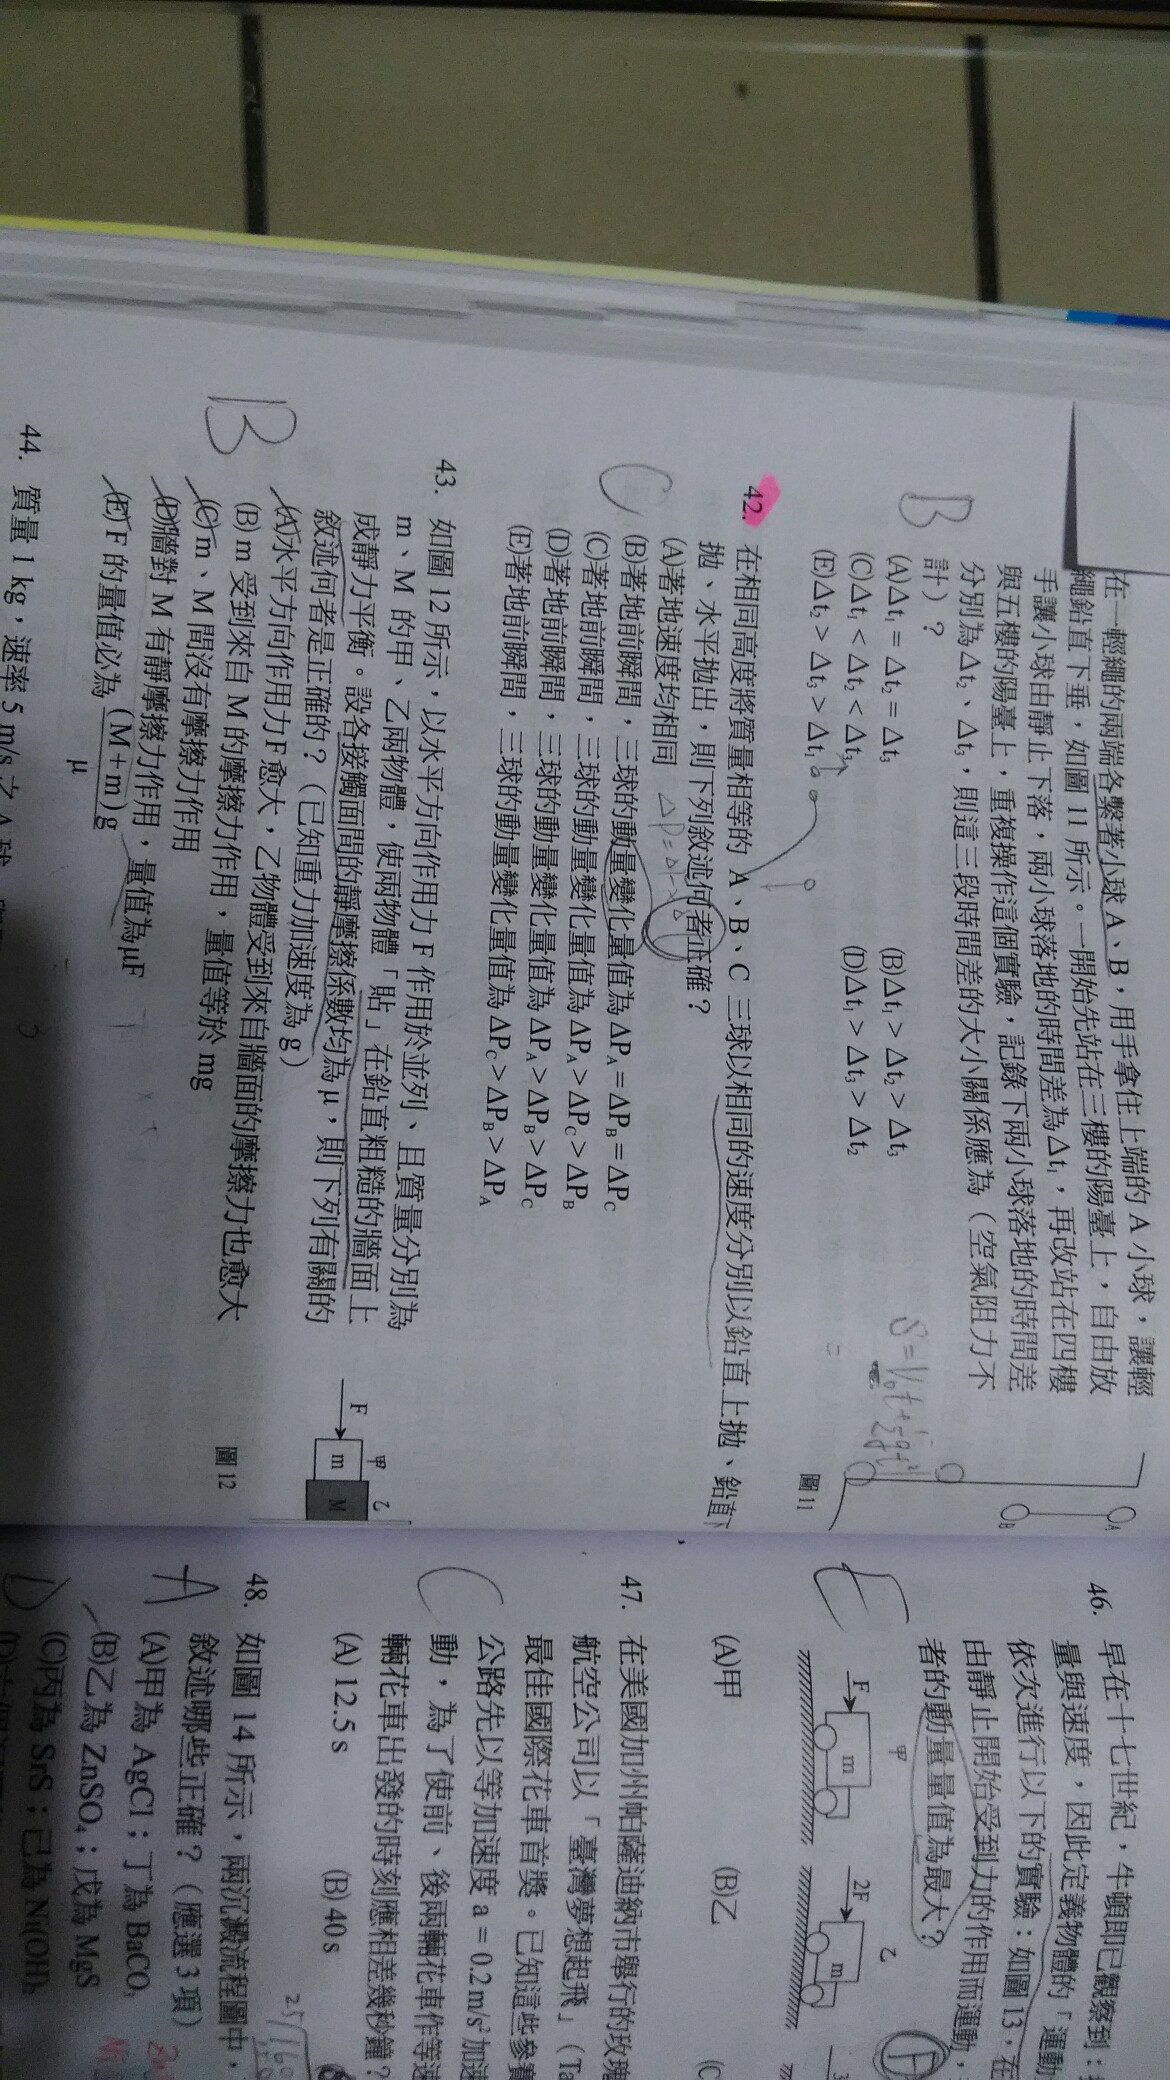 在一輕繩的兩端各繫著小球 A、B，用手拿住上端的 A 小球，讓輕
繩鉛直下垂，如圖 11 所示。一開始先站在三樓的陽臺上，自由放
手讓小球由靜止下落，兩小球落地的時間差為Δt₁，再改站在四樓
與五樓的陽臺上，重複操作這個實驗，記錄下兩小球落地的時間差
分別為Δt₂、Δt₃，則這三段時間差的大小關係應為（空氣阻力不
計）？
B
(A)Δt₁ = Δt₂ = Δt₃
(B)Δt₁ > Δt₂ > Δt₃
(C)Δt₁ < Δt₂ < Δt₃
(D)Δt₁ > Δt₃ > Δt₂
(E)Δt₂ > Δt₃ > Δt₁
A
B
圖 11
42. 在相同高度將質量相等的 A、B、C 三球以相同的速度分別以鉛直上拋、鉛直下
拋、水平拋出，則下列敘述何者正確？
C
(A)著地速度均相同
(B)著地前瞬間，三球的動量變化量值為 ΔP_A = ΔP_B = ΔP_C
(C)著地前瞬間，三球的動量變化量值為 ΔP_A > ΔP_C > ΔP_B
(D)著地前瞬間，三球的動量變化量值為 ΔP_A > ΔP_B > ΔP_C
(E)著地前瞬間，三球的動量變化量值為 ΔP_C > ΔP_B > ΔP_A
43. 如圖 12 所示，以水平方向作用力 F 作用於並列、且質量分別為
m、M 的甲、乙兩物體，使兩物體「貼」在鉛直粗糙的牆面上
成靜力平衡。設各接觸面間的靜摩擦係數均為 μ，則下列有關的
敘述何者是正確的？（已知重力加速度為 g）
B
(A)水平方向作用力F愈大，乙物體受到來自牆面的摩擦力也愈大
(B) m 受到來自 M 的摩擦力作用，量值等於 mg
(C) m、M 間沒有摩擦力作用
(D)牆對 M 有靜摩擦力作用，量值為μF
(E) F 的量值必為 (M + m) g / μ
甲
乙
F
m
M
圖 12
44. 質量 1 kg，速率 5 m/s 之 A 球
46. 早在十七世紀，牛頓即已觀察到：
量與速度，因此定義物體的「運動
依次進行以下的實驗：如圖 13，在
由靜止開始受到力的作用而運動，
者的動量量值為最大？
甲
F
m
乙
2F
m
(A)甲
(B)乙
(C
47. 在美國加州帕薩迪納市舉行的玫瑰
航空公司以「臺灣夢想起飛」（Ta
最佳國際花車首獎。已知這些參賽
公路先以等加速度 a = 0.2 m/s² 加速
動，為了使前、後兩輛花車作等速
輛花車出發的時刻應相差幾秒鐘？
C
(A) 12.5 s
(B) 40 s
48. 如圖 14 所示，兩沉澱流程圖中，
敘述哪些正確？（應選 3 項）
A
(A)甲為 AgCl；丁為 BaCO₃
(B)乙為 ZnSO₄；戊為 MgS
(C)丙為 SrS；己為 Ni(OH)₂
D